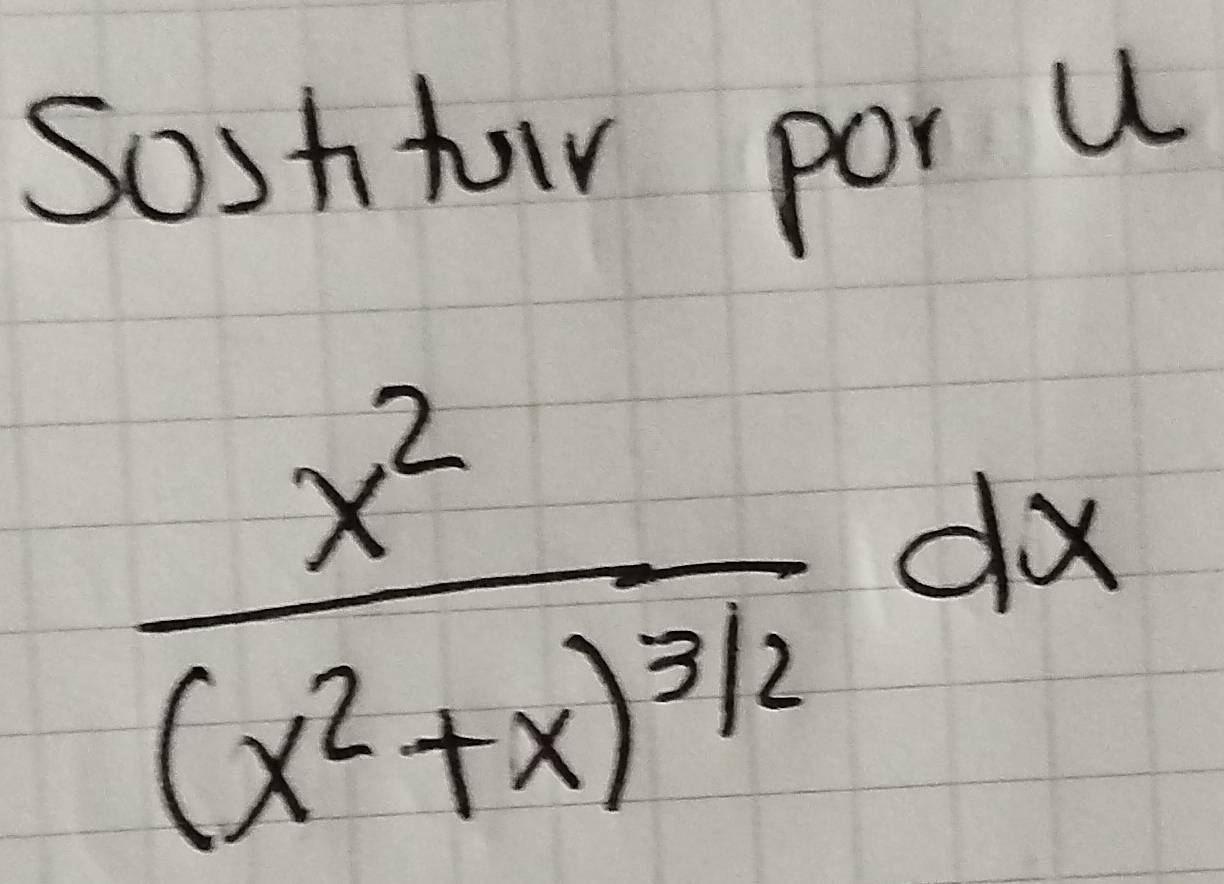 Sostituir por u
x²
(x²+x)^3/2 dx